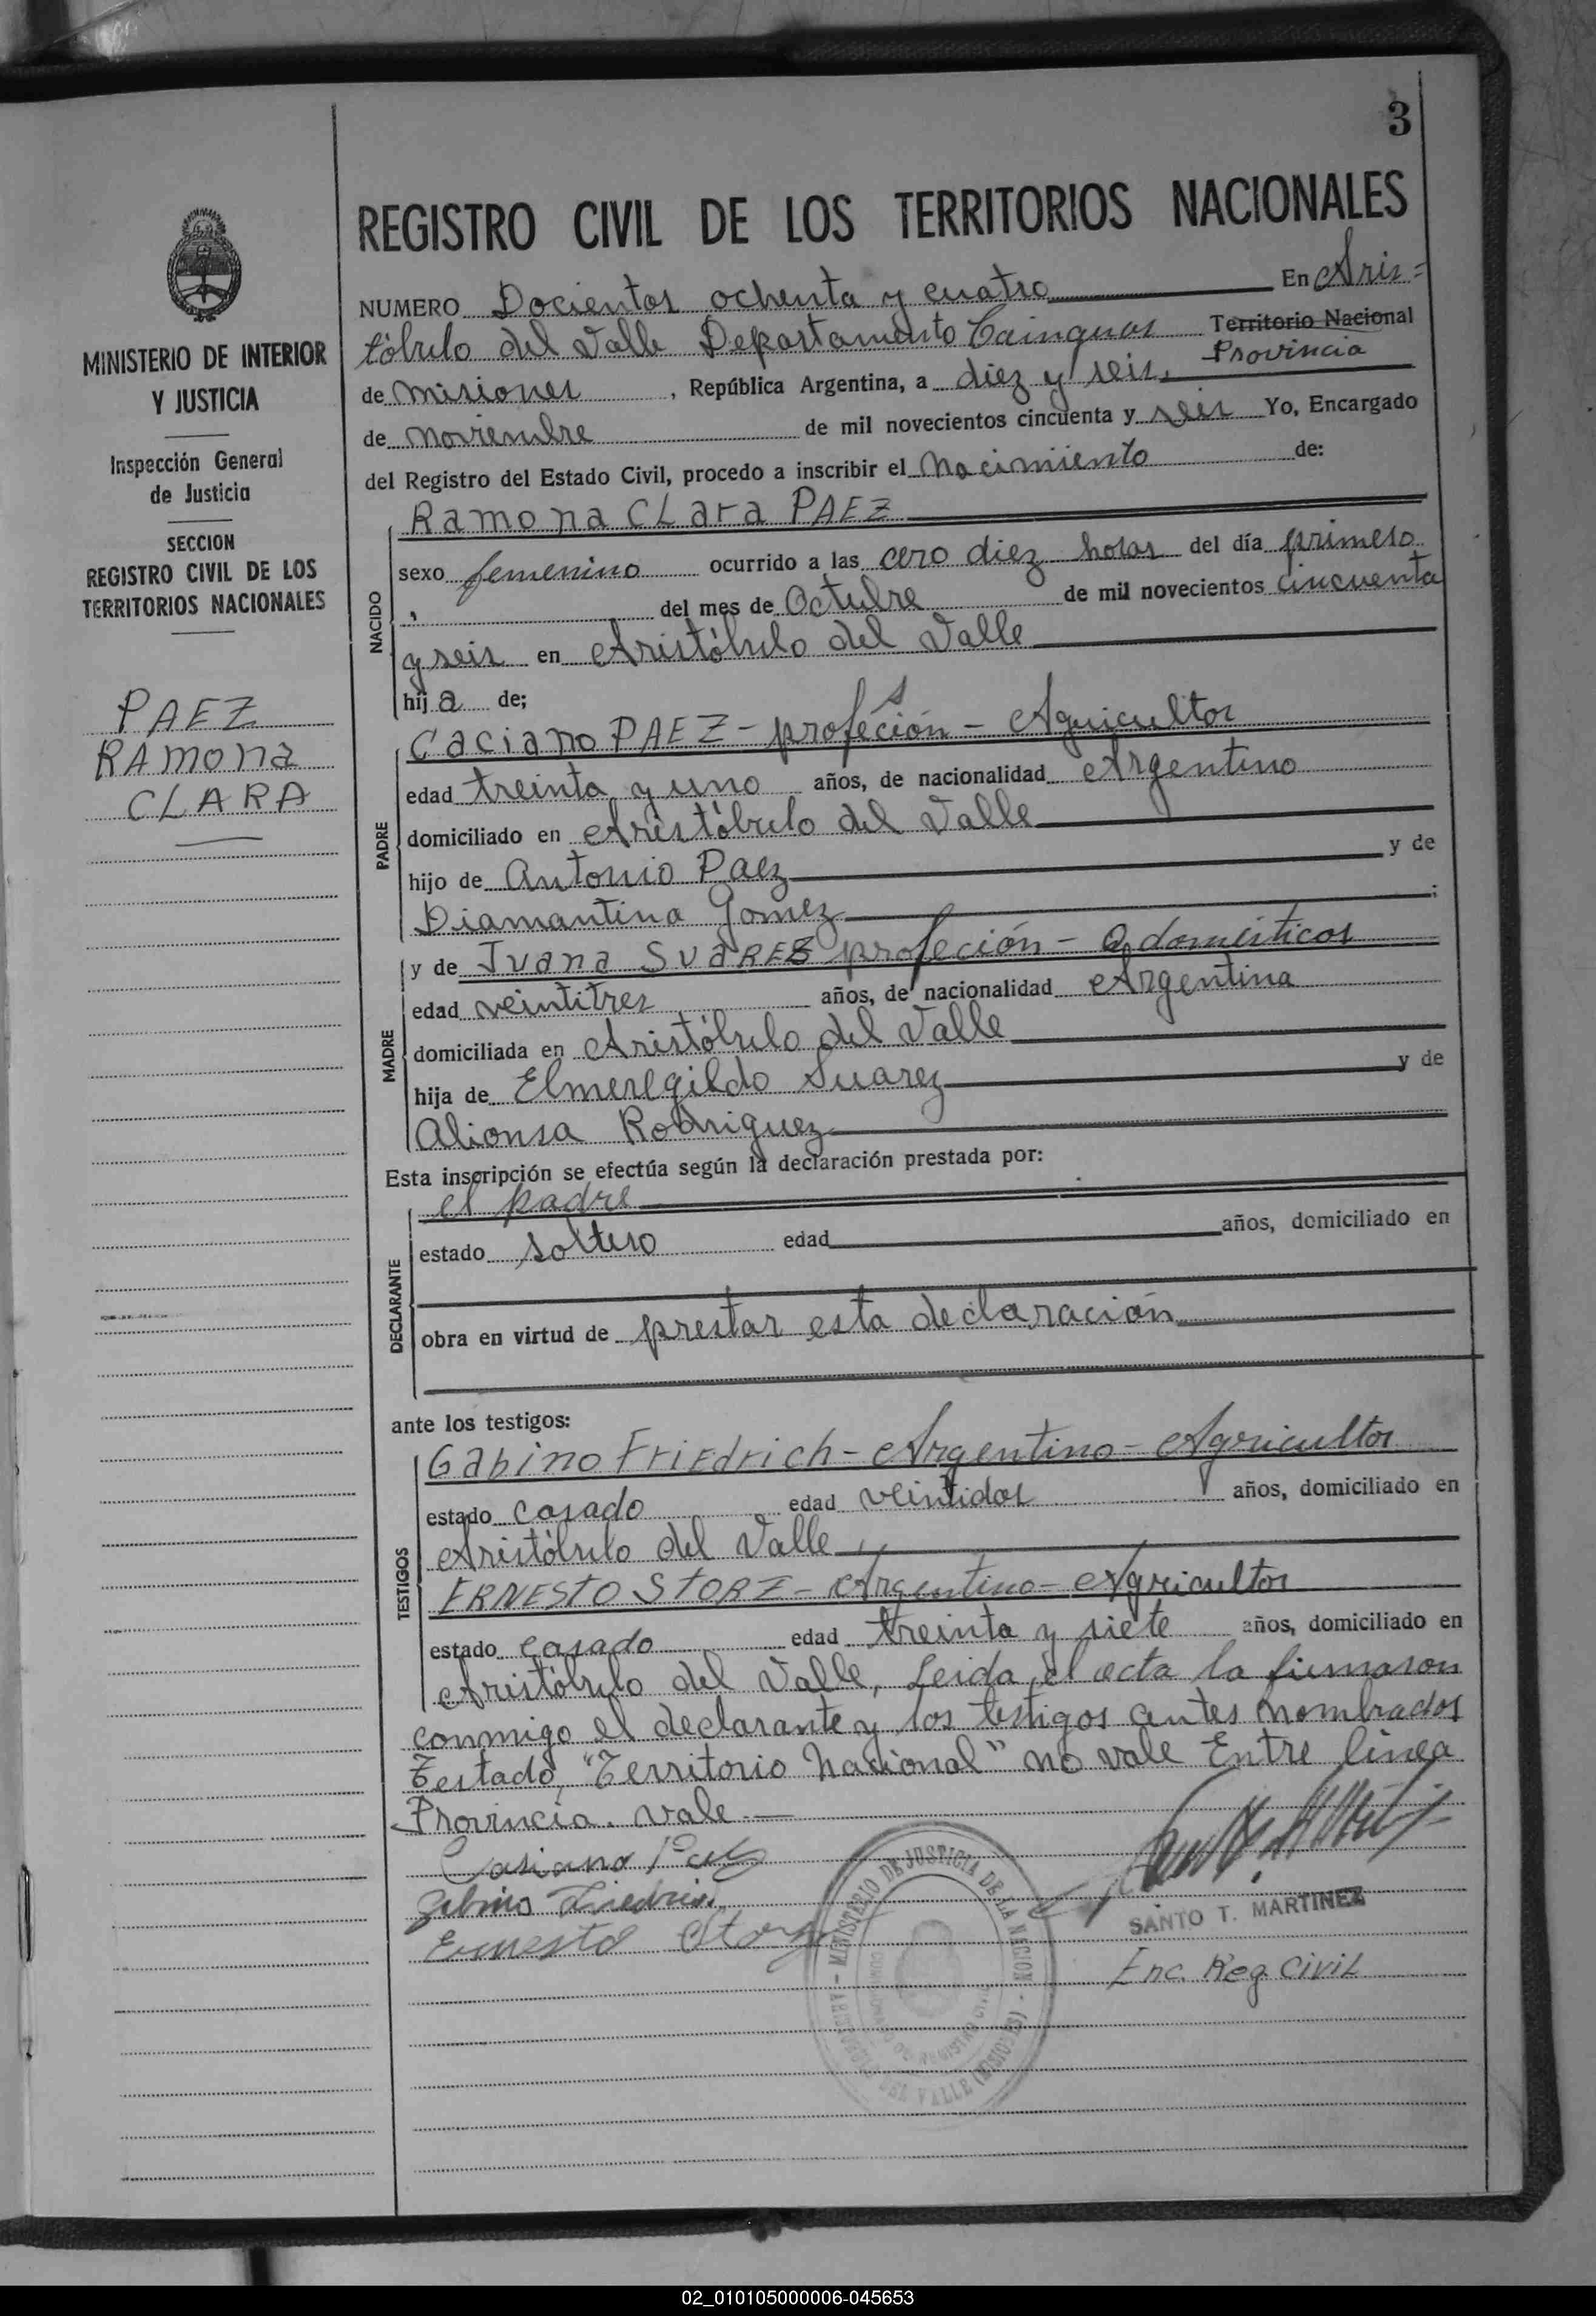 3
REGISTRO CIVIL DE LOS TERRITORIOS NACIONALES
MINISTERIO DE INTERIOR
Y JUSTICIA
Inspección General
de Justicia
SECCION
REGISTRO CIVIL DE LOS
TERRITORIOS NACIONALES
PAEZ
RAMONA
CLARA
NUMERO Docientos ochenta y cuatro En Aris=
tóbulo del Valle Departamento Cainguas Territorio Nacional
Provincia
de Misiones, República Argentina, a diez y seis
de Noviembre de mil novecientos cincuenta y seis Yo, Encargado
del Registro del Estado Civil, procedo a inscribir el Nacimiento de:
NACIDO
Ramona CLara PAEZ
sexo femenino ocurrido a las cero diez horas del día primero
, del mes de Octubre de mil novecientos cincuenta
y seis en Aristóbulo del Valle
hija de;
PADRE
Caciano PAEZ - profeción - Agricultor
edad treinta y uno años, de nacionalidad Argentino
domiciliado en Aristóbulo del Valle
hijo de Antonio Paez y de
Diamantina Gomez ;
MADRE
y de Juana SUAREZ profeción - Q domésticos
edad veintitres años, de nacionalidad Argentina
domiciliada en Aristóbulo del Valle
hija de Elmeregildo Suarez y de
Alionsa Rodriguez
Esta inscripción se efectúa según la declaración prestada por:
DECLARANTE
el padre
estado soltero edad años, domiciliado en
obra en virtud de prestar esta declaración
ante los testigos:
TESTIGOS
Gabino Friedrich - Argentino - Agricultor
estado casado edad veintidos años, domiciliado en
Aristóbulo del Valle
ERNESTO STORZ - Argentino - Agricultor
estado casado edad treinta y siete años, domiciliado en
Aristóbulo del Valle, Leida el acta la firmaron
conmigo el declarante y los testigos antes nombrados
Testado, "Territorio Nacional" no vale Entre linea
Provincia. vale
Casiano Paez
Gabino Friedrich
Ernesto Storz
MINISTERIO DE JUSTICIA DE LA NACION
SANTO T. MARTINEZ
Enc. Reg. Civil
02_010105000006-045653